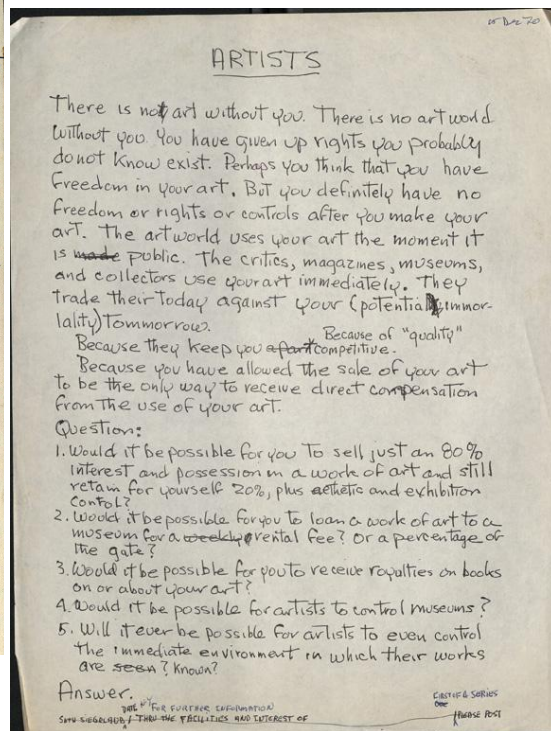 15 Dec 70
ARTISTS
There is not art without you. There is no art world
without you. You have given up rights you probably
do not know exist. Perhaps you think that you have
freedom in your art. But you definitely have no
freedom or rights or controls after you make your
art. The art world uses your art the moment it
is made public. The critics, magazines, museums,
and collectors use your art immediately. They
trade their today against your (potential immor-
lality) Tommorrow.
Because of "quality"
Because they keep you apart competitive.
Because you have allowed the sale of your art
to be the only way to receive direct compensation
from the use of your art.
Question:
1. Would it be possible for you to sell just an 80%
interest and possession in a work of art and still
retain for yourself 20%, plus aethetic and exhibition
control?
2. Would it be possible for you to loan a work of art to a
museum for a weekly rental fee? Or a percentage of
the gate?
3. Would it be possible for you to receive royalties on books
on or about your art?
4. Would it be possible for artists to control museums?
5. Will it ever be possible for artists to even control
the immediate environment in which their works
are seen? Known?
Answer.
FOR FURTHER INFORMATION
FIRST OF A SERIES
SETH SIEGELAUB / THRU THE FACILITIES AND INTEREST OF
PLEASE POST